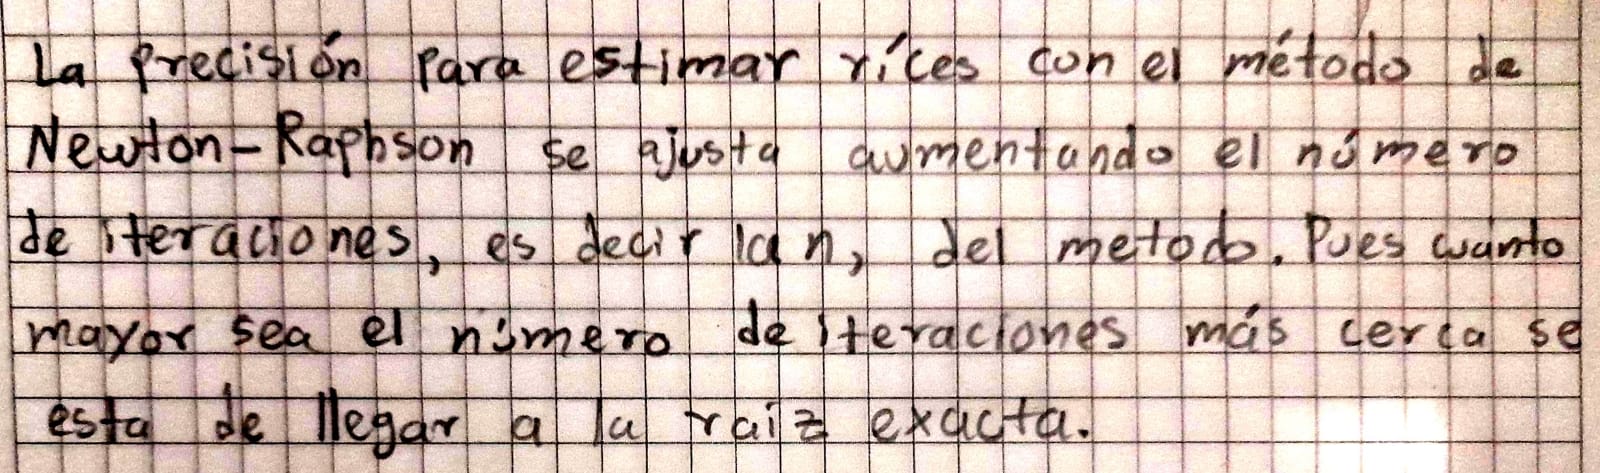 La precisión para estimar ríces con el método de
Newton-Raphson se ajusta aumentando el número
de iteraciones, es decir la n, del metodo. Pues cuanto
mayor sea el número de iteraciones más cerca se
esta de llegar a la raiz exacta.